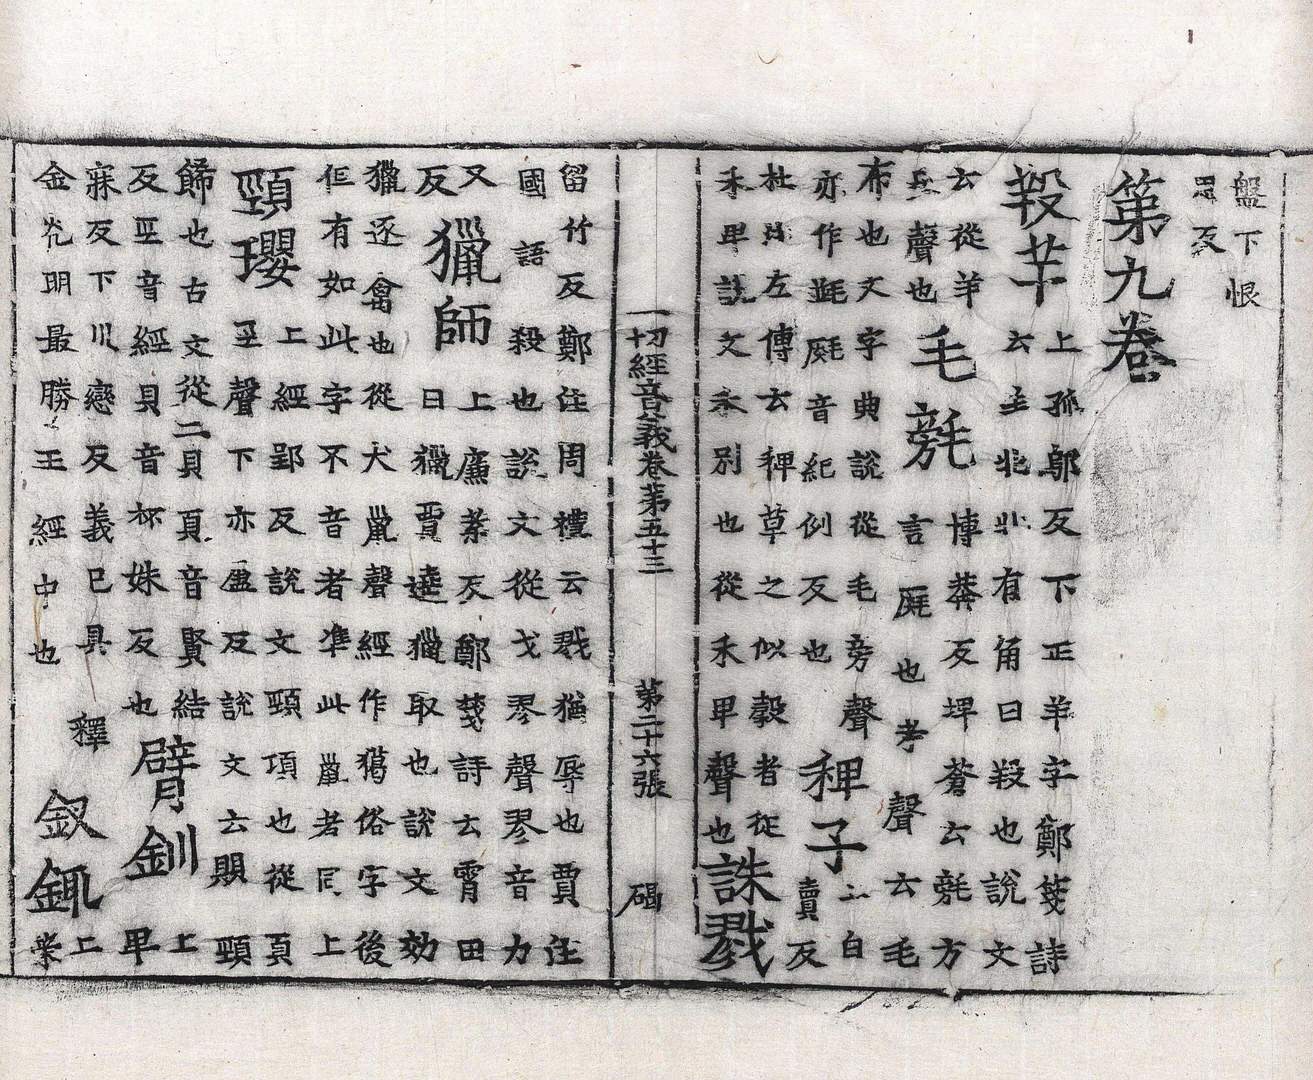 盤下恨
恩反
第九卷
羖䍧
上孫鄔反下正羊字鄭箋詩
云羊北牝有角曰羖也說文
云從羊
殳聲也
毛㲠
博莽反埤蒼云㲠方
言𣯶也考聲云毛
布也文字典說從毛旁聲
亦作𣮉𣯶音紀例反也
稗子
上白
賣反
杜注左傳云稗草之似穀者從
禾卑說文禾別也從禾卑聲也
誅戮
一切經音義卷第五十三 第二十六張 碣
留竹反鄭注周禮云戮猶辱也賈注
國語殺也說文從戈翏聲翏音力
又
反
獵師
上廉葉反鄭箋詩云霄田
曰獵賈逵獵取也說文效
獵逐禽也從犬巤聲經作獦俗字後
但有如此字不音者準此巤者同上
頸瓔
上經郢反說文頸項也從頁
巠聲下亦盈反說文云賏頸
飾也古文從二貝頁音賢結上
反巠音經貝音𣏌妹反也
臂釧
卑
寐反下川戀反義已具釋
金光明最勝王經中也
釵鈿
上
業